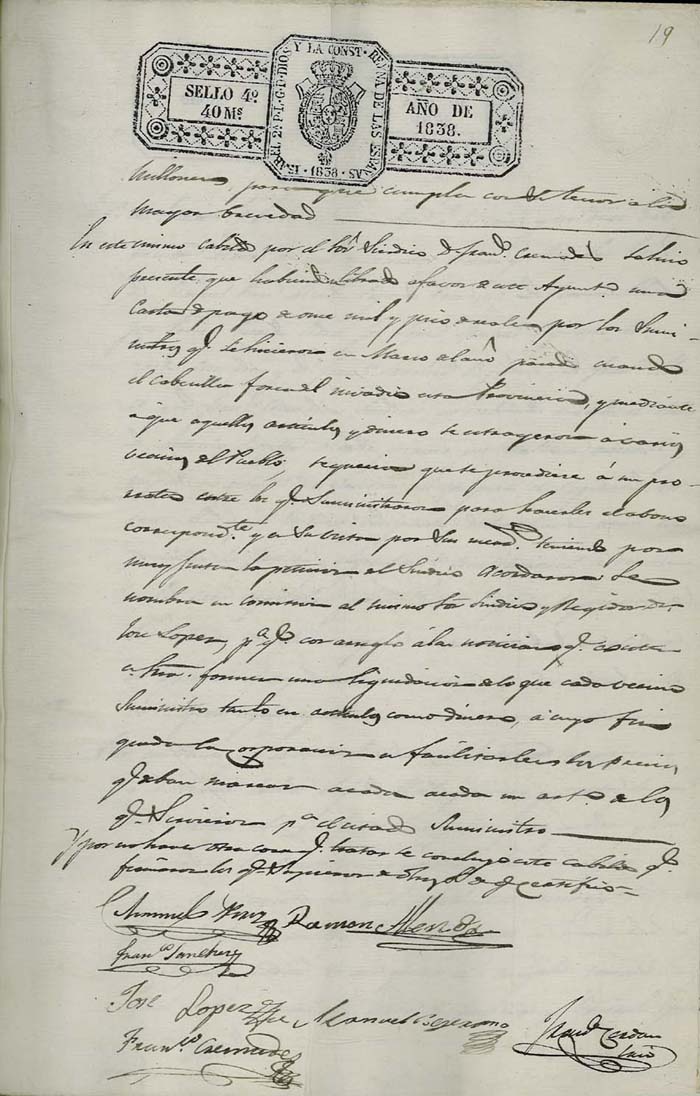 19
SELLO 4º
40Mˢ
ISABEL 2ª P.L.G.D.DIOS Y LA CONST. REYNA DE LAS ESPAÑAS
1838
AÑO DE
1838.
Millones, para que cumpla con su tenor a la
mayor brevedad
En este mismo cabildo por el Sor Sindico Dn Franco. Cremades se hizo
presente, que habiendo librado a favor de este Ayunto. una
Carta de pago de once mil y pico de reales por los Sumi-
nistros qe. se hicieron en Marzo del año pasado cuando
el cabecilla Forcadell invadió esta Provincia, y mediante
á que aquellos articulos y dinero se estrageron á varios
vecinos del Pueblo, requeria que se procediese á su pro-
rrateo entre los qe. Suministraron para hacerles el abono
correspondte. y en su vista por Sus mercds. teniendo por
muy justa la peticion del Sindico Acordaron: Se
nombra en comision al mismo Sor Sindico y Regidor Dn
José Lopez, pa. qe. con arreglo á las noticias qe. existen
en Sria. formen una liquidacion de lo que cada vecino
Suministró tanto en articulos como dinero, á cuyo fin
queda la corporacion en facilitarles los precios
qe. deban marcar a cada uno de los
qe. Sirvieron pa. el citado Suministro
Y por no haver otra cosa qe. tratar se concluyó este cabildo qe.
firmaron los qe. Supieron de Sus mds. de qe. certifico
Manuel Ruiz Ramon Alenda
Franco. Sanchez
José Lopez Manuel
Franco. Cremades
Franco. Cerdan
Srio